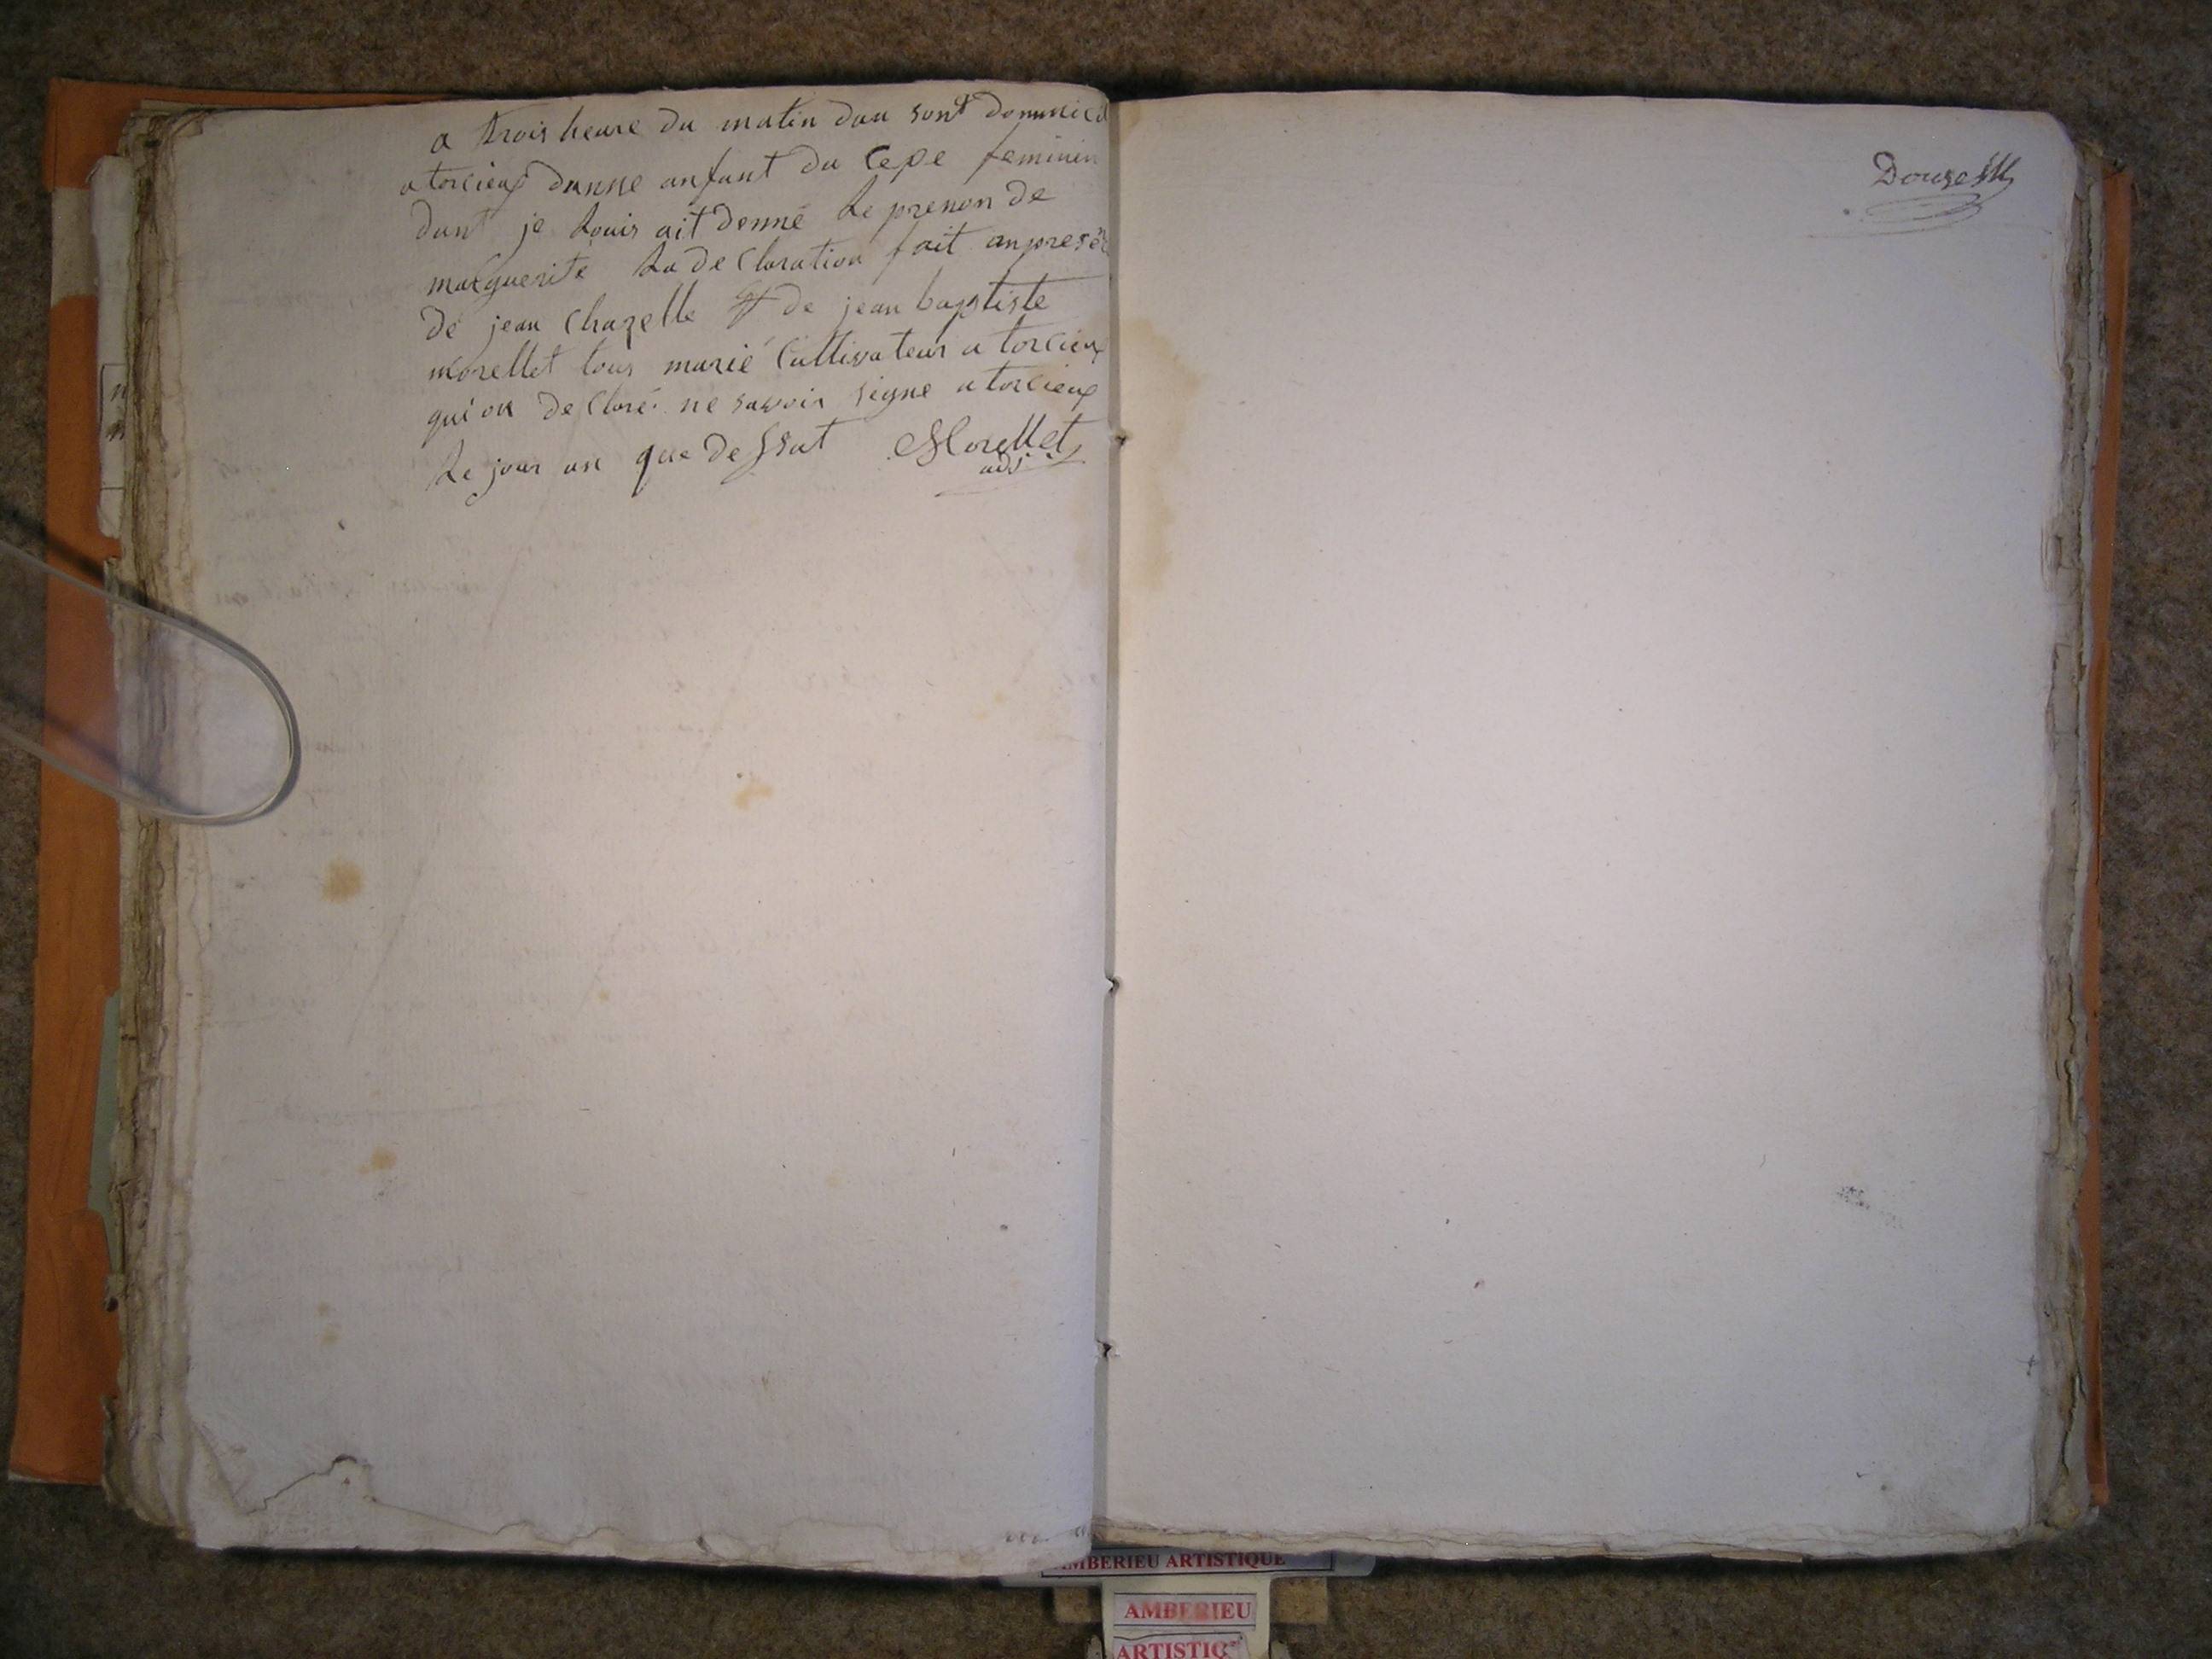 a trois heure du matin dan sont domicil
a torcieux dunne anfant du Cexe feminin
dunt je Louis ait donné Le prenon de
marguerite La de Claration fait anpresen
de jean Chazelle et de jean baptiste
morellet tous marié Cultivateur a torcieux
qui on de Claré ne savoir signe a torcieux
Le jour an que dessut Morellet
adj.
Douze
AMBERIEU ARTISTIQUE
AMBERIEU
ARTISTIQ